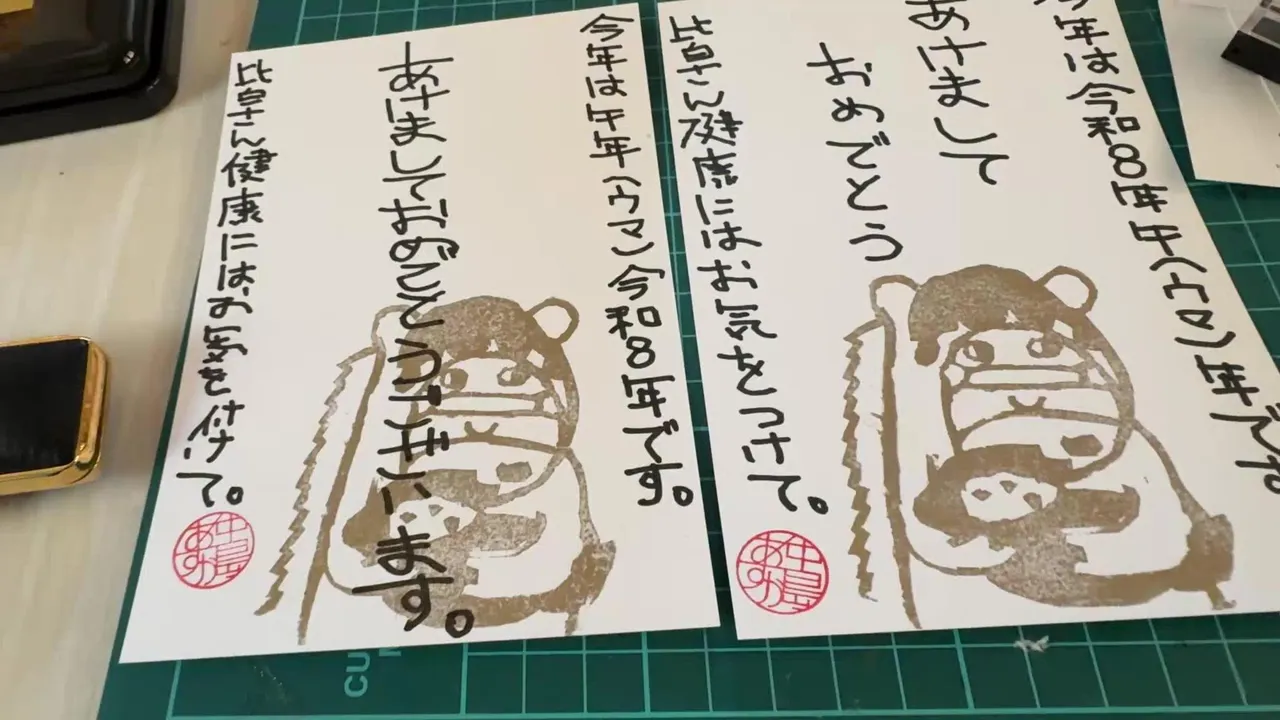 今年は午年(ウマ)令和8年です。
あけましておめでとうございます。
皆さん健康にはお気を付けて。
今年は令和8年午(ウマ)年です
あけまして
おめでとう
皆さん健康にはお気をつけて。